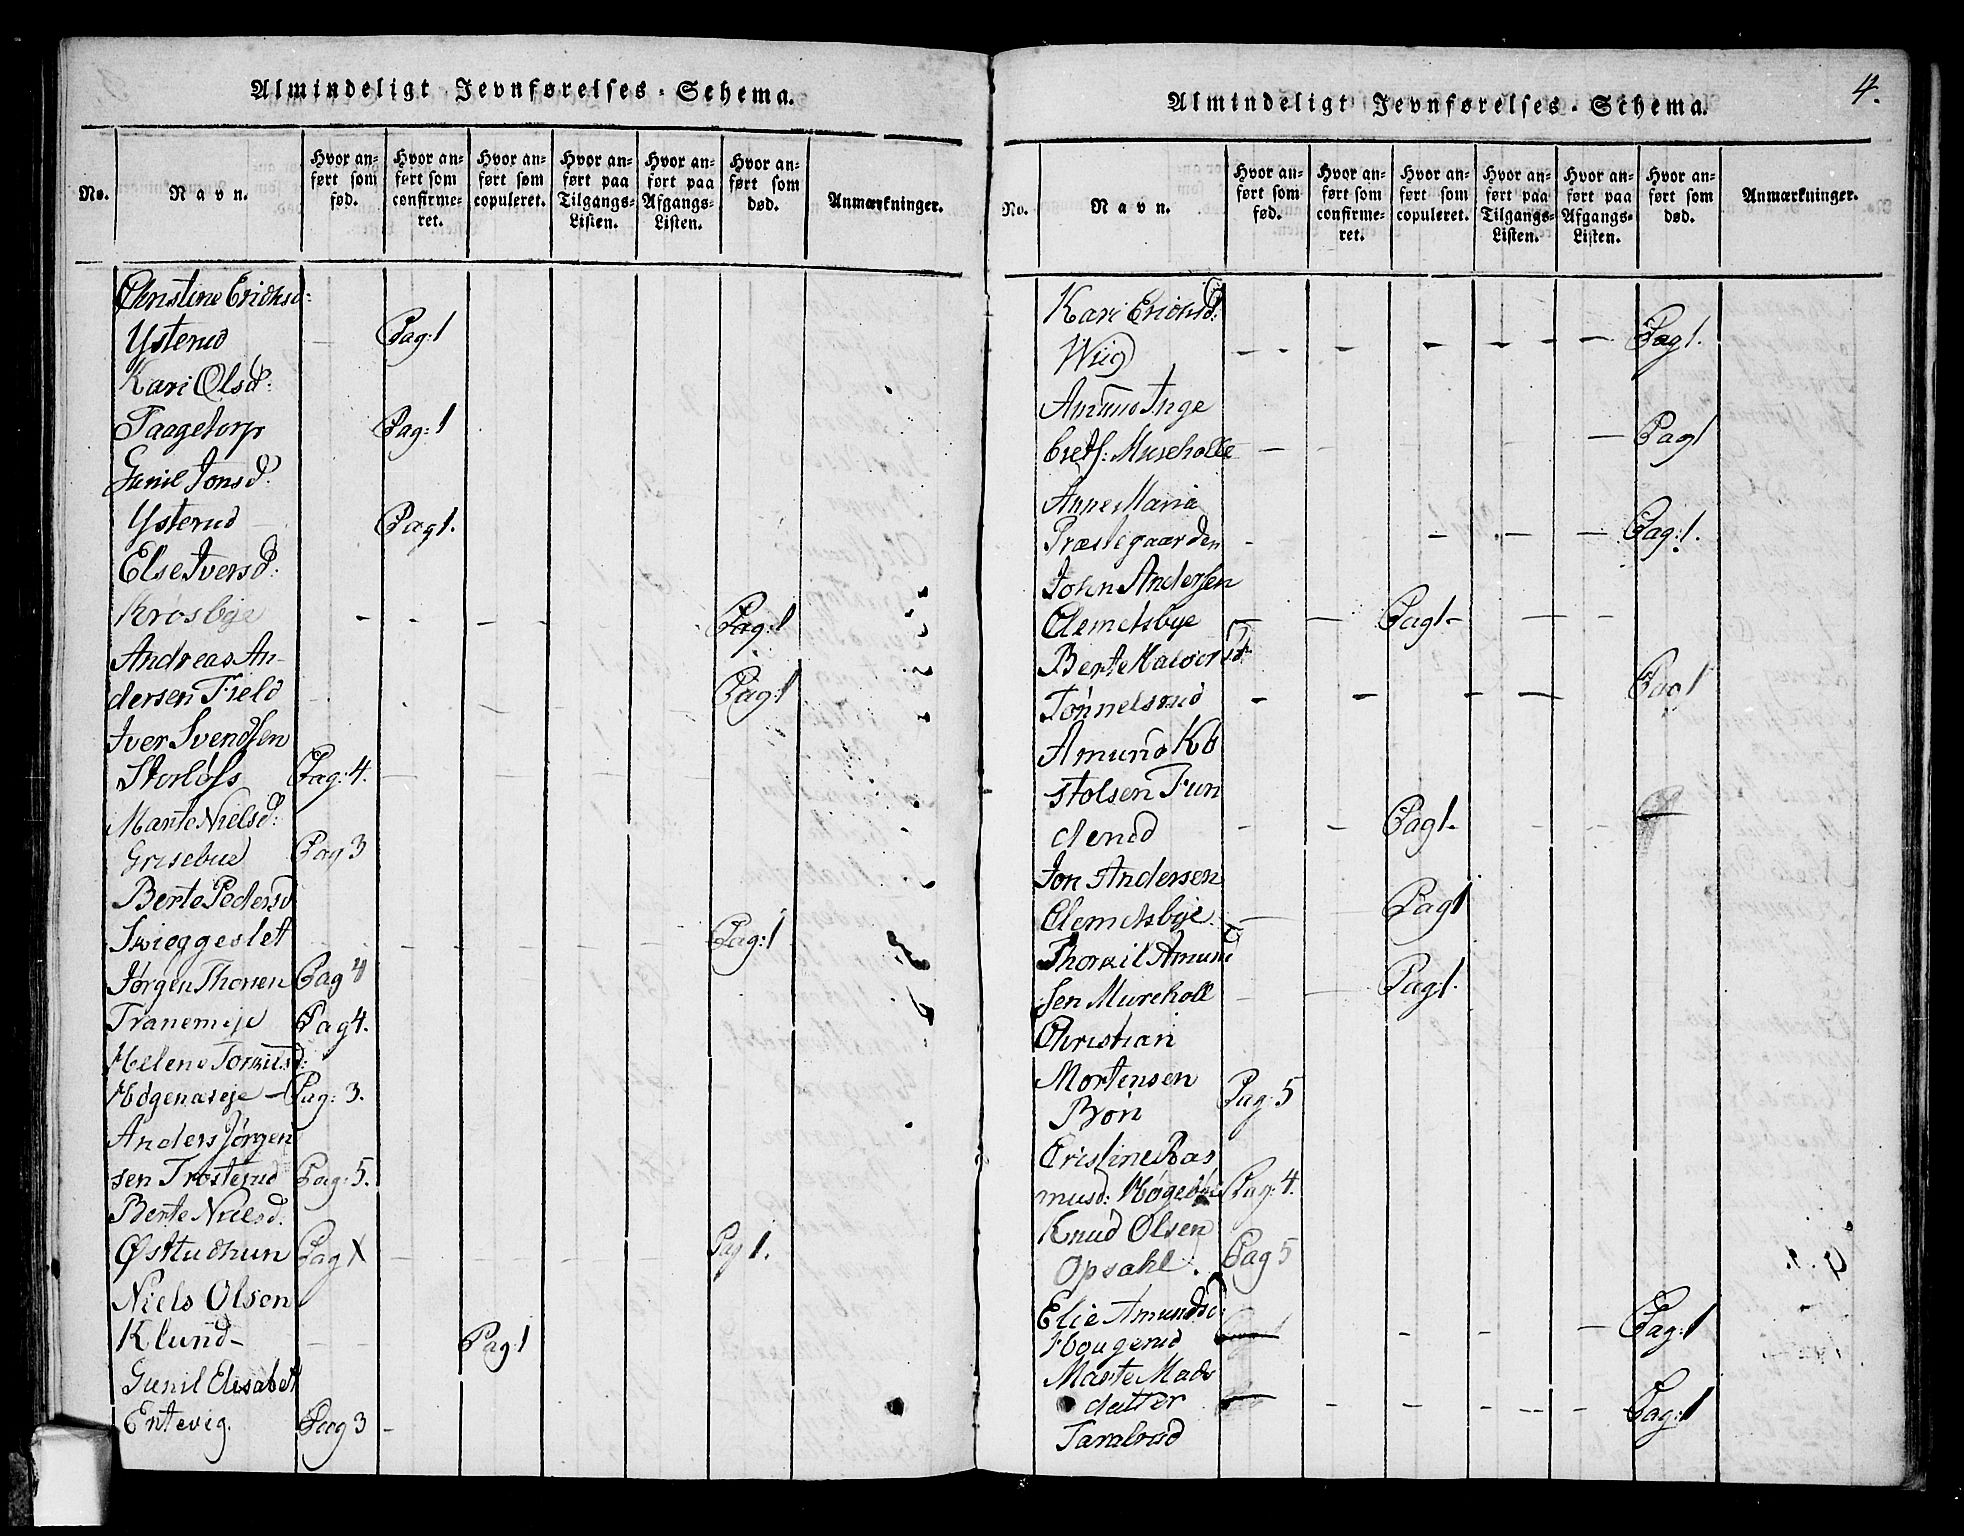 Almindeligt Jevnførelses-Schema.
No.
Navn.
Hvor anført som fød.
Hvor anført som confirmeret.
Hvor anført søm copuleret.
Hvor anført paa Tilgangs-Listen.
Hvor anført paa Afgangs-Listen.
Hvor anført som død.
Anmærkninger.
Christine Erichsd:
Ysterud Pag:1
Kari Olsd:
Taagetorp Pag:1
Gunil Jonsd:
Ysterud Pag1.
Else Iversd:
Krosbye - - - - Pag:1
Andreas An-
dersen Field Pag:1
Iver Svendsen
Storløfs Pag:4.
Marte Nielsd:
Grisebue Pag 3
Berte Pedersd
Svieggeslet Pag:1
Jørgen Thorsen Pag 4
Tranemeje Pag 4.
Helene Torkilsd:
Hògenaseje - Pag: 3.
Anders Jörgen
sen Trosterud Pag: 5.
Berte Nielsd:
Østudhun Pag Pag 1.
Niels Olsen
Klund- Pag1
Gunil Elisabet
Entevig. Pag 3 -
Almindeligt Jevnførelses-Schema.
4.
No.
Navn.
Hvor anført som fød.
Hvor anført som confirmeret.
Hvor anført som copuleret.
Hvor anført paa Tilgangs-Listen.
Hvor anført paa Afgangs-Listen.
Hvor anført som død.
Anmærkninger.
Kari Erichsd:
Wiig - - - - - - Pag 1.
Amund Inge
bretf: Mureholle - - - Pag 1
Anne Maria
Præstegaarden - - - - Pag:1.
John Andersen
Clemetsbye - - Pag1- - -
Berte Halvorsd:
Tønnelsrud - - - - Pag 1
Amund Ko
stolsen Fun
derud - - Pag1. - - -
Jon Andersen
Clemetsbye - - Pag1
Thorkil Amund
sen Mureholl - - Pag1.
Christian
Mortensen Pag:5
Brön
Cristine Ras
musd: Høgeböe Pag:4.
Knud Olsen
Opsahl. Pag 5
Elie Amundsd:
Hougerud - - - Pag:1
Marte Mads
datter - - - - - Pag:1
Taralrud